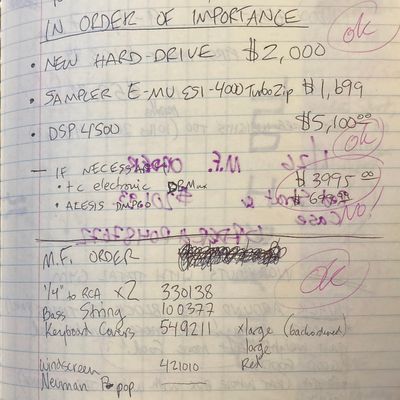 IN ORDER OF IMPORTANCE
ok
• NEW HARD-DRIVE $2,000
• SAMPLER E-MU ESI-4000 TurboZip $1,699
• DSP-4500 $5,100.00
ok
— IF NECESSARY
• tc electronic DBMax $3995.00
• ALESIS
No!
M.F. ORDER
ok
1/4" to RCA x2 330138
Bass String 100377
Keyboard Covers 549211 xlarge
large
Windscreen 421010 Red
Neuman Pop